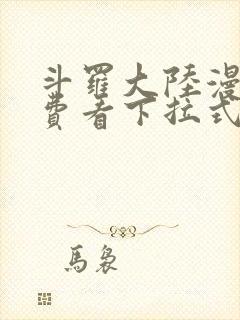 斗羅大陸漫
費看下拉式
馬裊